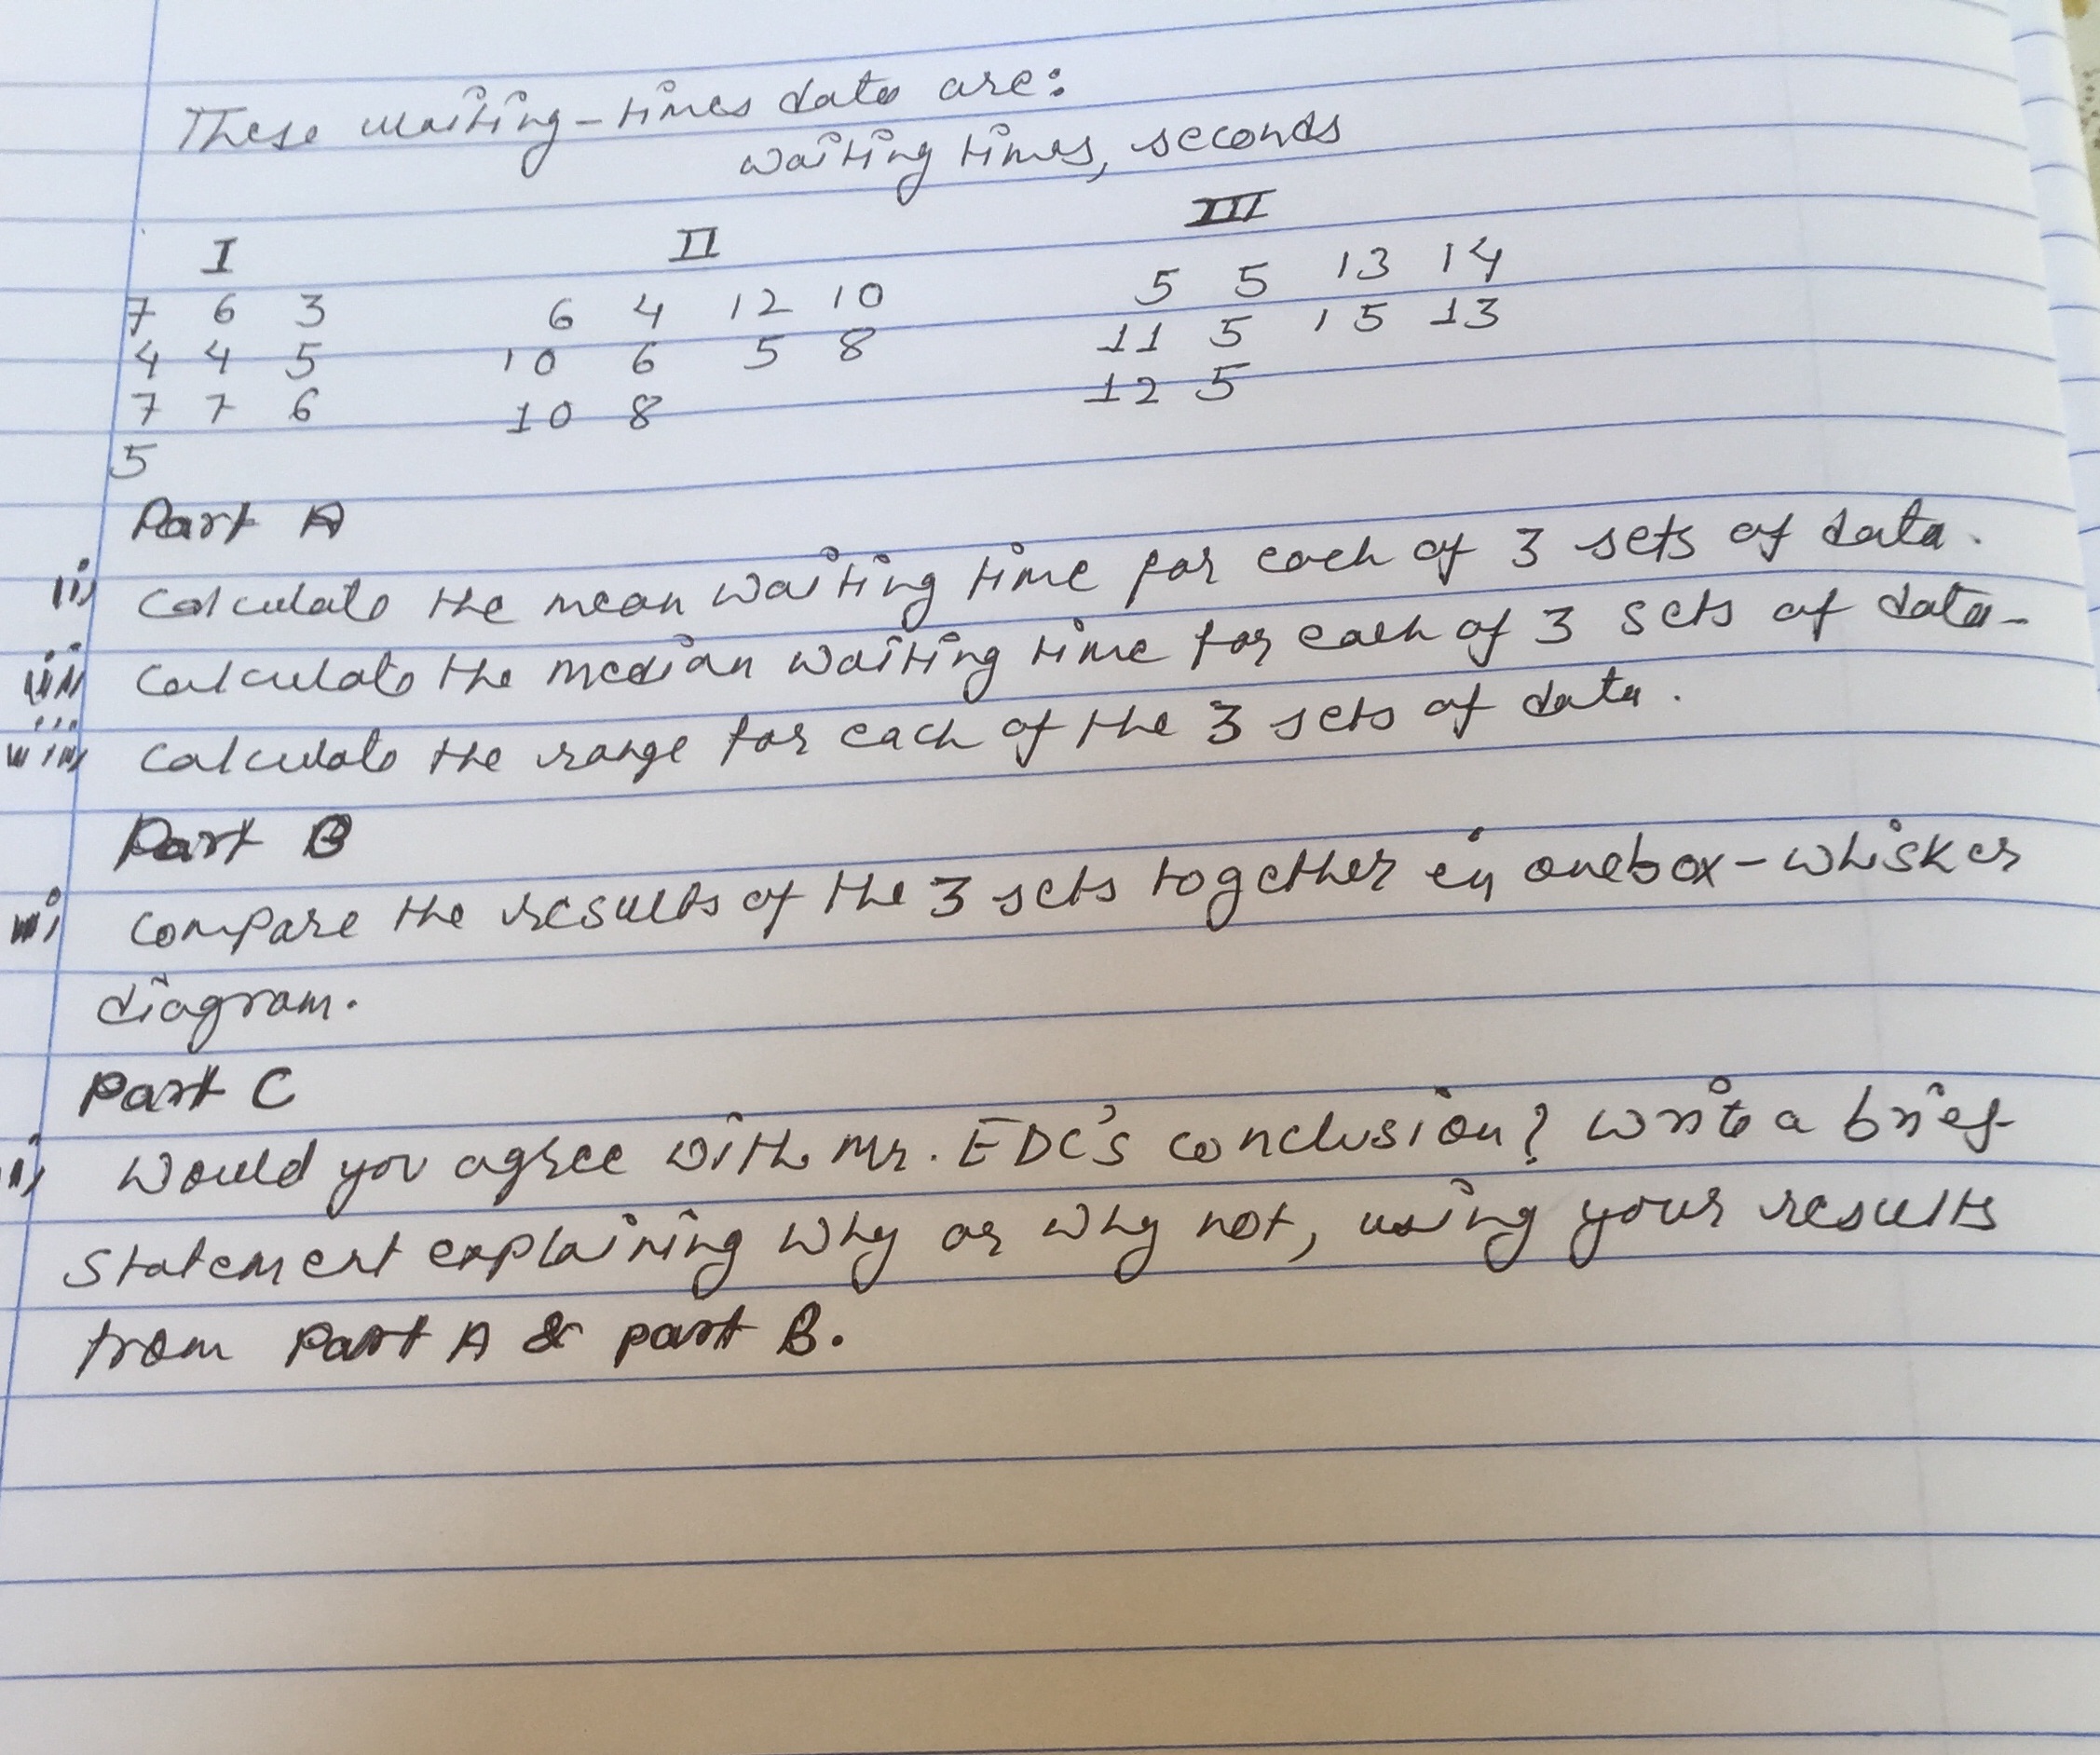 These waiting-times data are:
waiting times, seconds
I II III
7 6 3 6 4 12 10 5 5 13 14
4 4 5 10 6 5 8 11 5 15 13
7 7 6 10 8 12 5
5
Part A
i) Calculate the mean waiting time for each of 3 sets of data.
ii) Calculate the median waiting time for each of 3 sets of data-
iii) Calculate the range for each of the 3 sets of data.
Part B
i) Compare the results of the 3 sets together in one box-whisker
diagram.
Part C
i) Would you agree with Mr. EDC's conclusion? Write a brief
statement explaining why or why not, using your results
from Part A & part B.